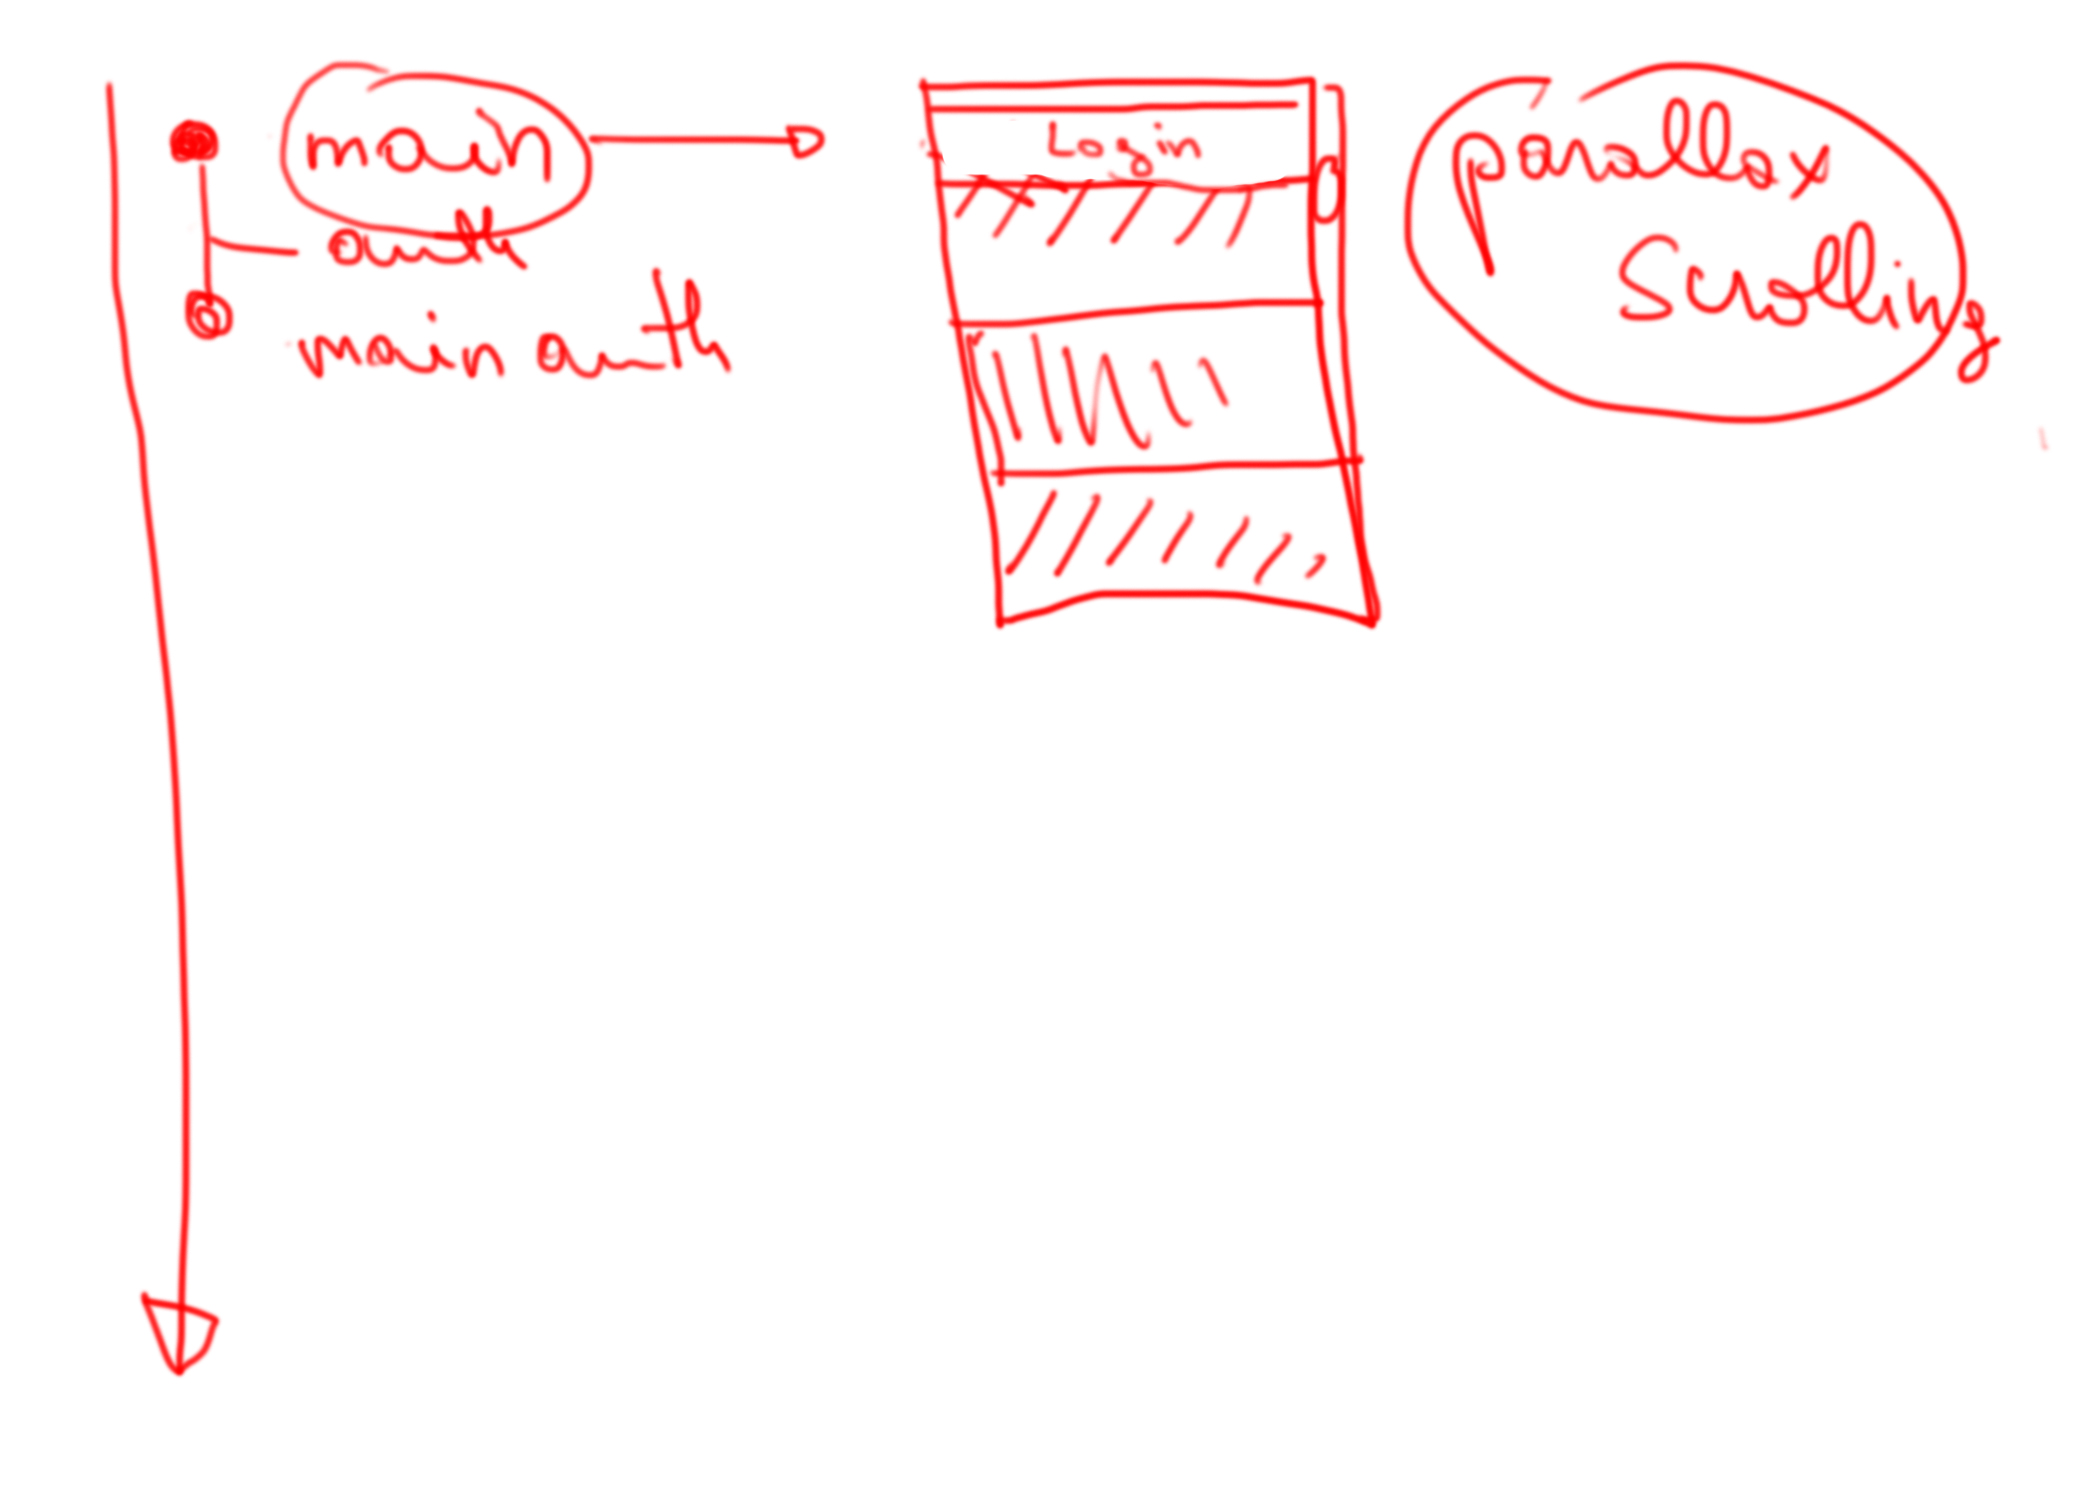 main
auth
main auth
Login
parallax
Scrolling